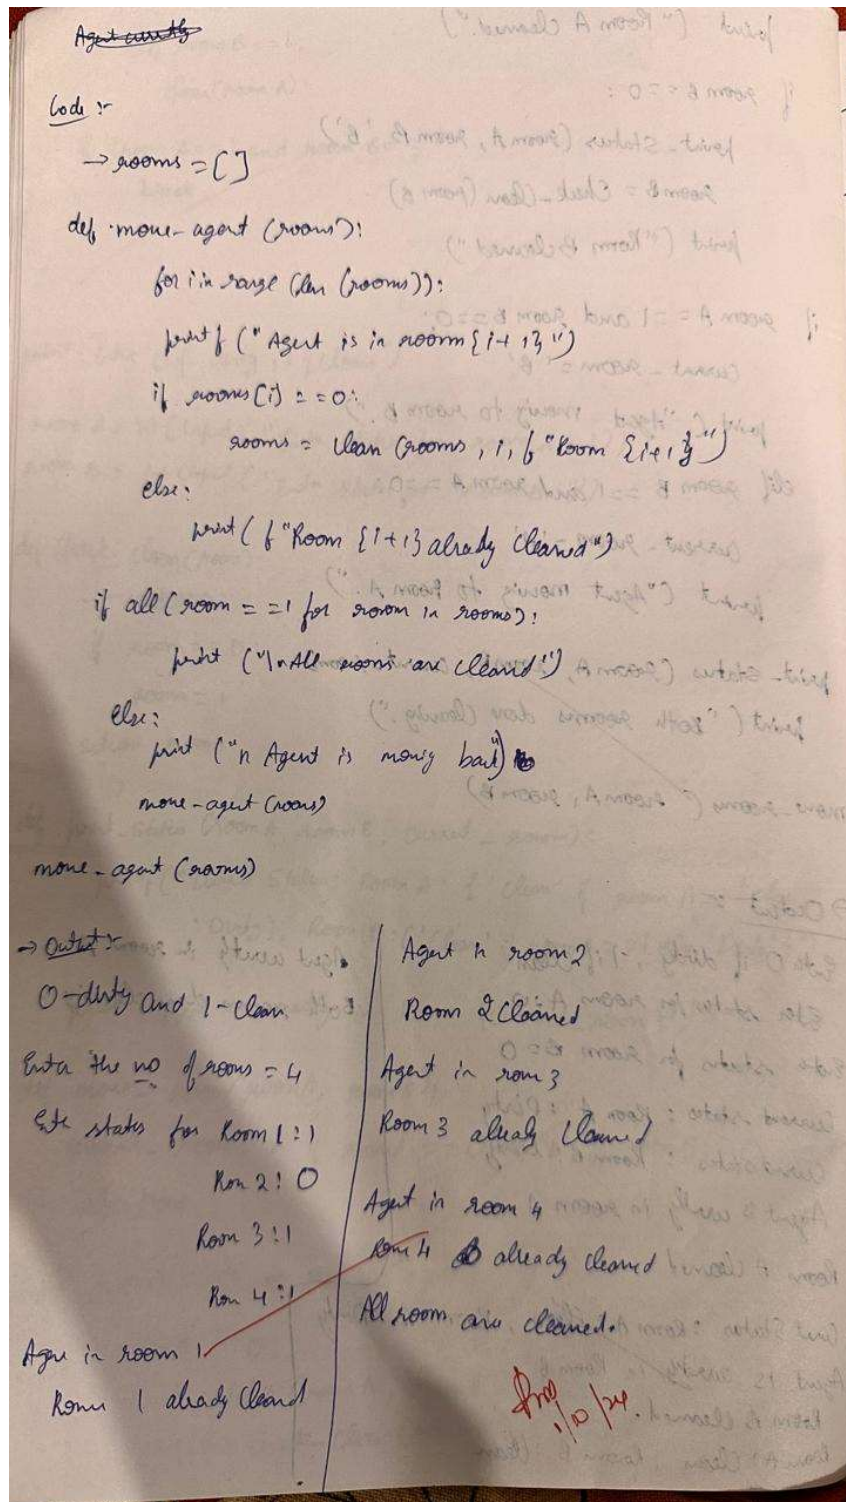 Agent currently
Code :-
→ rooms = [ ]
def move-agent (rooms):
for i in range (len (rooms)):
printf ("Agent is in room {i+1}")
if rooms[i] == 0:
rooms = clean (rooms, i, f "Room {i+1}")
else:
print (f "Room {i+1} already cleaned")
if all (room == 1 for room in rooms):
print ("\nAll rooms are cleaned")
else:
print ("n Agent is moving back")
move-agent (rooms)
move-agent (rooms)
→ Output :-
0-dirty and 1-clean
Enter the no of rooms = 4
Ente status for Room 1 : 1
Rom 2 : 0
Room 3 : 1
Rom 4 : 1
Agen in room 1
Room 1 already cleand
Agent in room 2
Room 2 Cleaned
Agent in room 3
Room 3 already cleaned
Agent in room 4
Room 4 already cleaned
All room are cleaned.
1/10/24